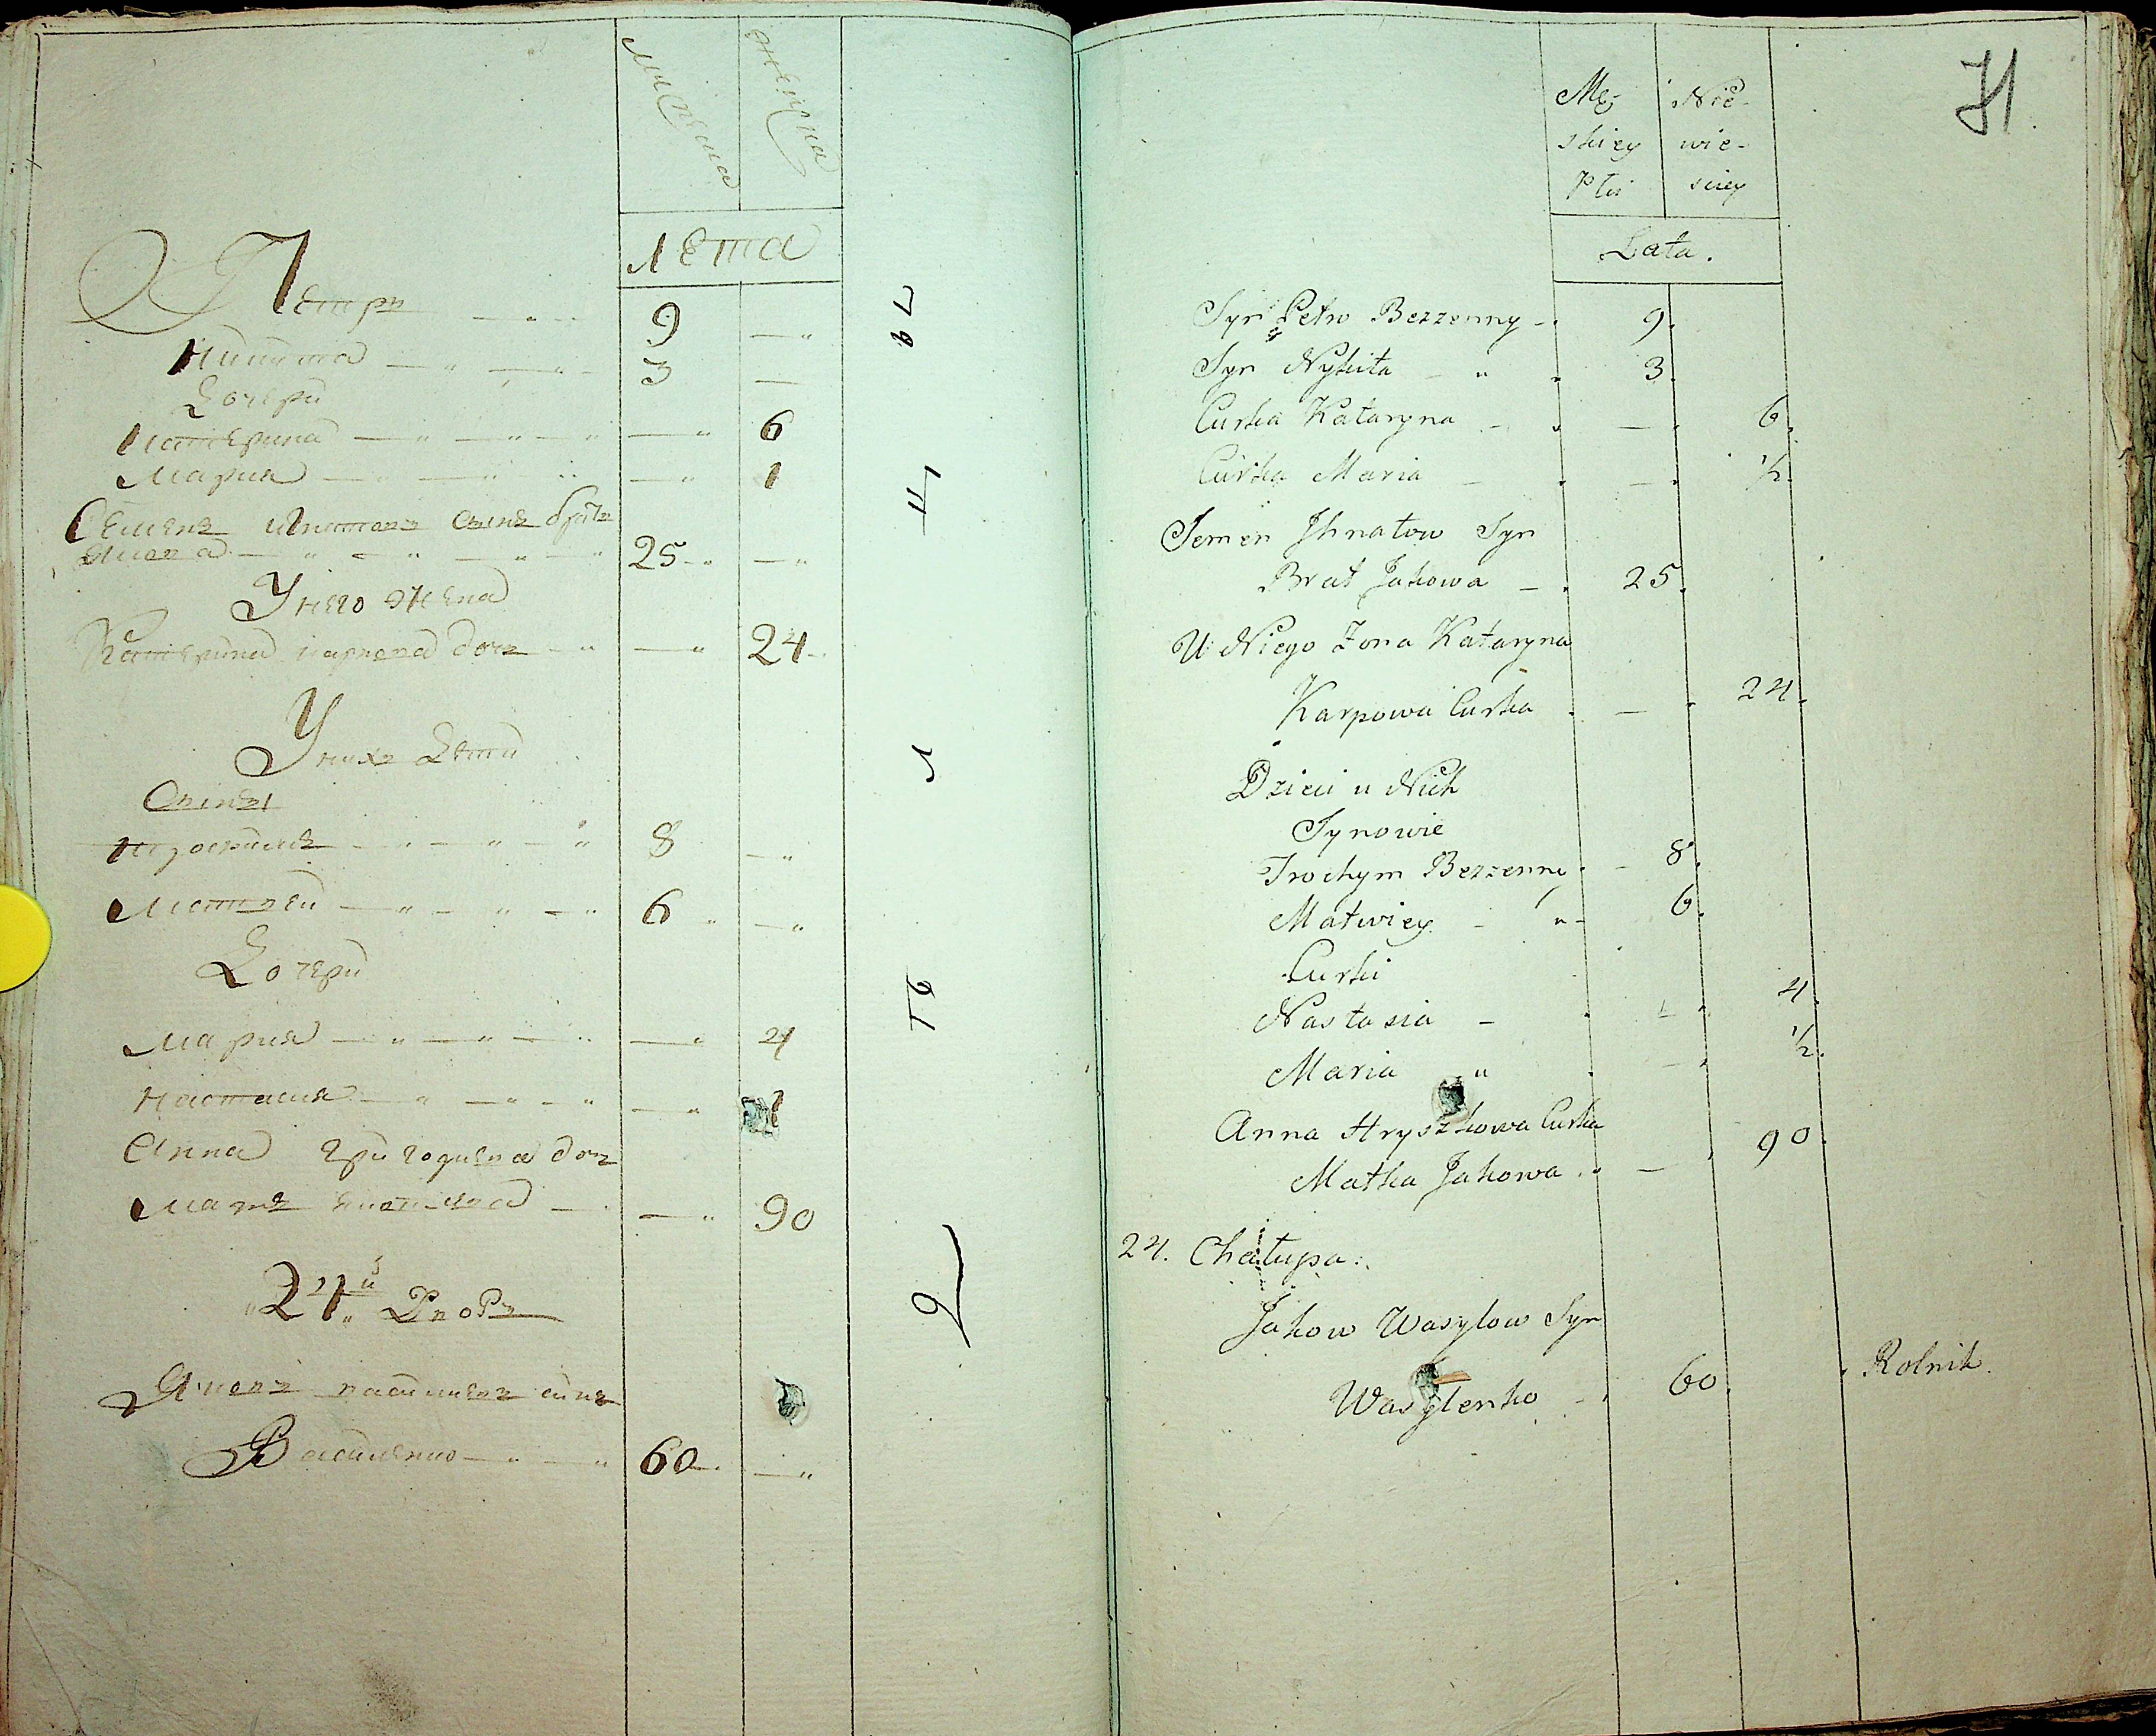 мужеска женска
лета
Петръ 9 —
Никита 3 —
Дочери
Катерина — 6
Мария — 1
Семенъ Игнатовъ сынъ братъ
Якова 25 —
У него жена
Катерина Карпова дочь — 24
У нихъ дети
Сыны
Трохимъ 8 —
Матвей 6 —
Дочери
Мария — 4
Настасия — 1
Анна дочь
Мать — 90
24й Дворъ
Яковъ Васильевъ сынъ
Василенко 60 —
71
Mę- Nie-
skiey wie-
Płci sciey
Lata.
Syn Petro Bezzenny - 9.
Syn Nykita - " 3.
Curka Kataryna - — 6.
Curka Maria - — ½.
Semen Ihnatow Syn
Brat Jakowa - 25.
U Niego Zona Kataryna
Karpowa Curka — 24.
Dzieci u Nich
Synowie
Trochym Bezzenny - 8.
Matwiey - " - 6.
Curki
Nastasia - — 4.
Maria " — ½.
Anna Hryszkowa Curka
Matka Jakowa — 90.
24. Chałupa:
Jakow Wasylow Syn
Wasylenko - 60. Rolnik.